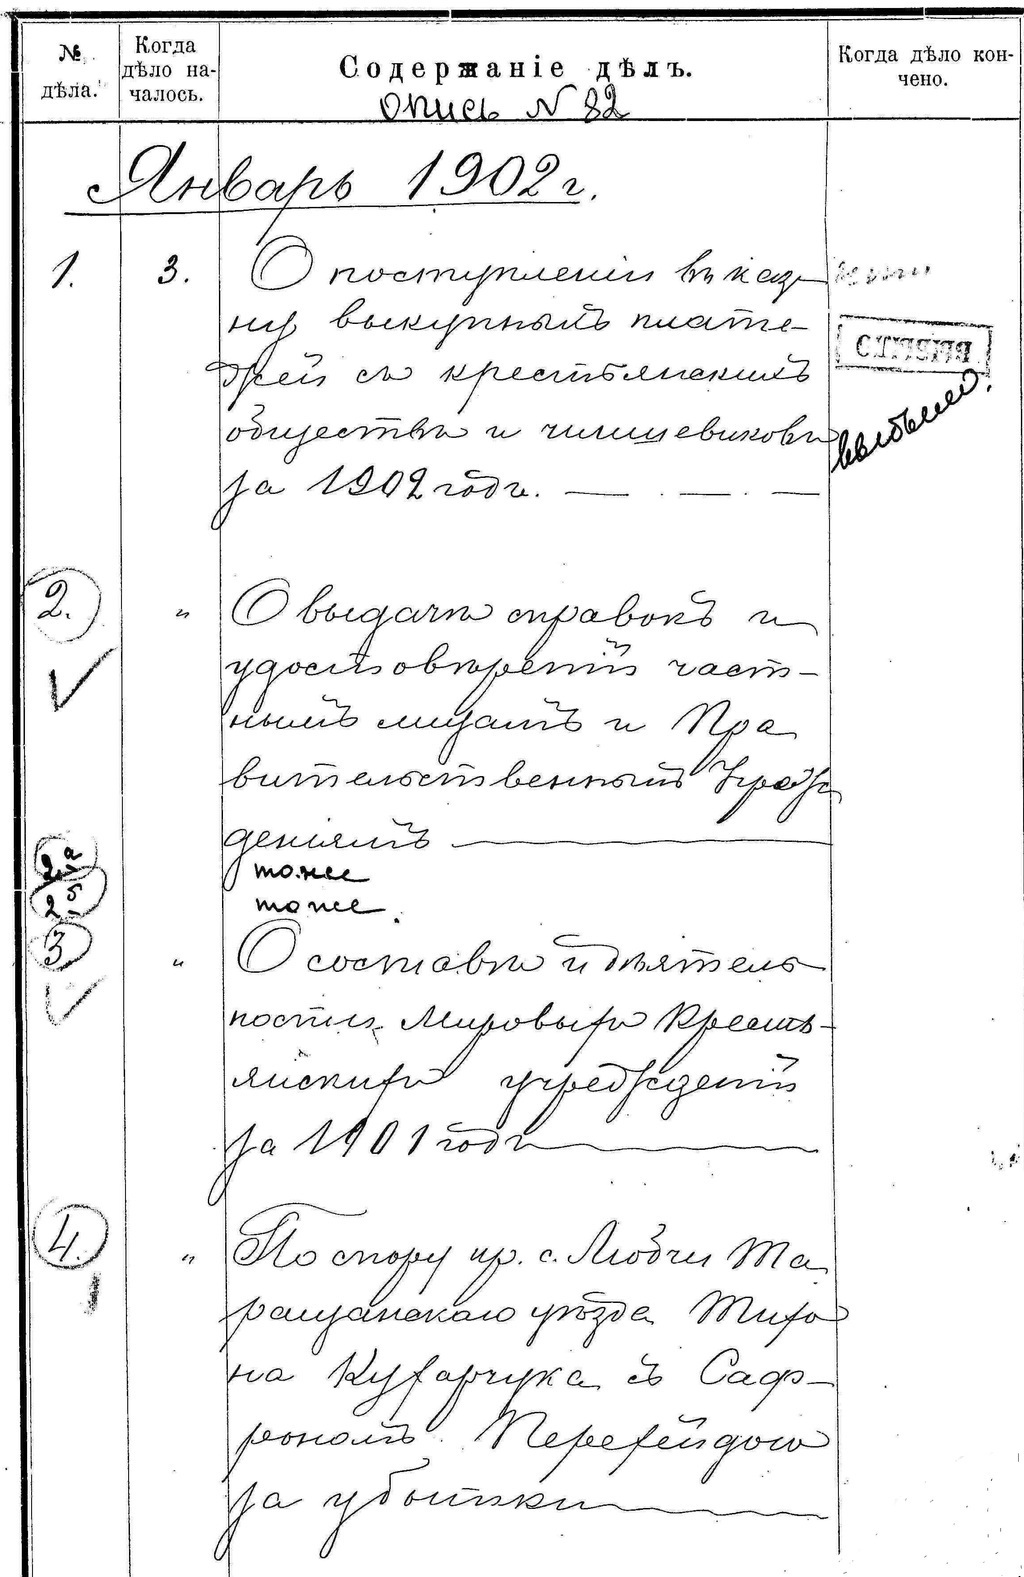 №
дѣла.
Когда
дѣло на-
чалось.
Содержаніе дѣлъ.
Когда дѣло кон-
чено.
Опись N 82
Январь 1902 г.
1.
3.
О поступленіи въ каз-
ну выкупныхъ плате-
жей съ крестьянскихъ
обществъ и чиншевиковъ
за 1902 годъ. — . — . —
ВЫБЫЛО
выбыло.
2.
"
О выдачѣ справокъ и
удостовѣреній част-
нымъ лицамъ и Пра
вительственнымъ Учреж
деніямъ
2а
тоже
2б
тоже.
3
"
О составѣ и дѣятель
ности Мировыхъ Кресть-
янскихъ учрежденій
за 1901 годъ
4.
"
По спору кр. с. Любчи Та
ращанскаго уѣзда Тихо
на Кухарчука съ Саф-
рономъ Перехейдою
за убытки